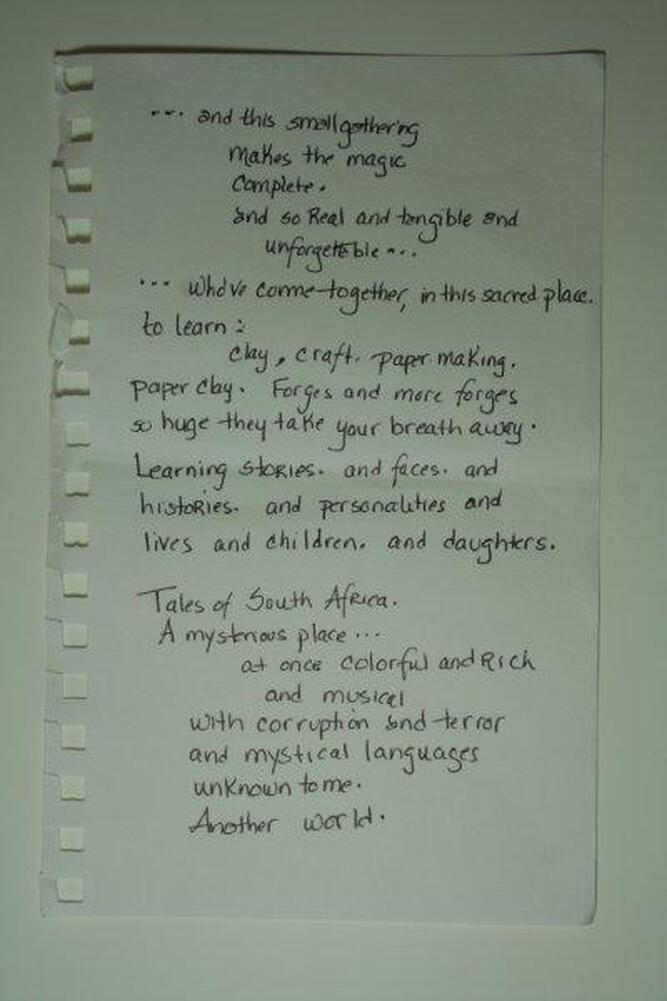 ... and this small gathering
makes the magic
complete.
and so Real and tangible and
unforgettable ...
... who've come together, in this sacred place.
to learn :
clay, craft. paper making.
paper clay. Forges and more forges
so huge they take your breath away.
Learning stories. and faces. and
histories. and personalities and
lives and children. and daughters.
Tales of South Africa.
A mysterious place ...
at once colorful and Rich
and musical
with corruption and terror
and mystical languages
unknown to me.
Another world.